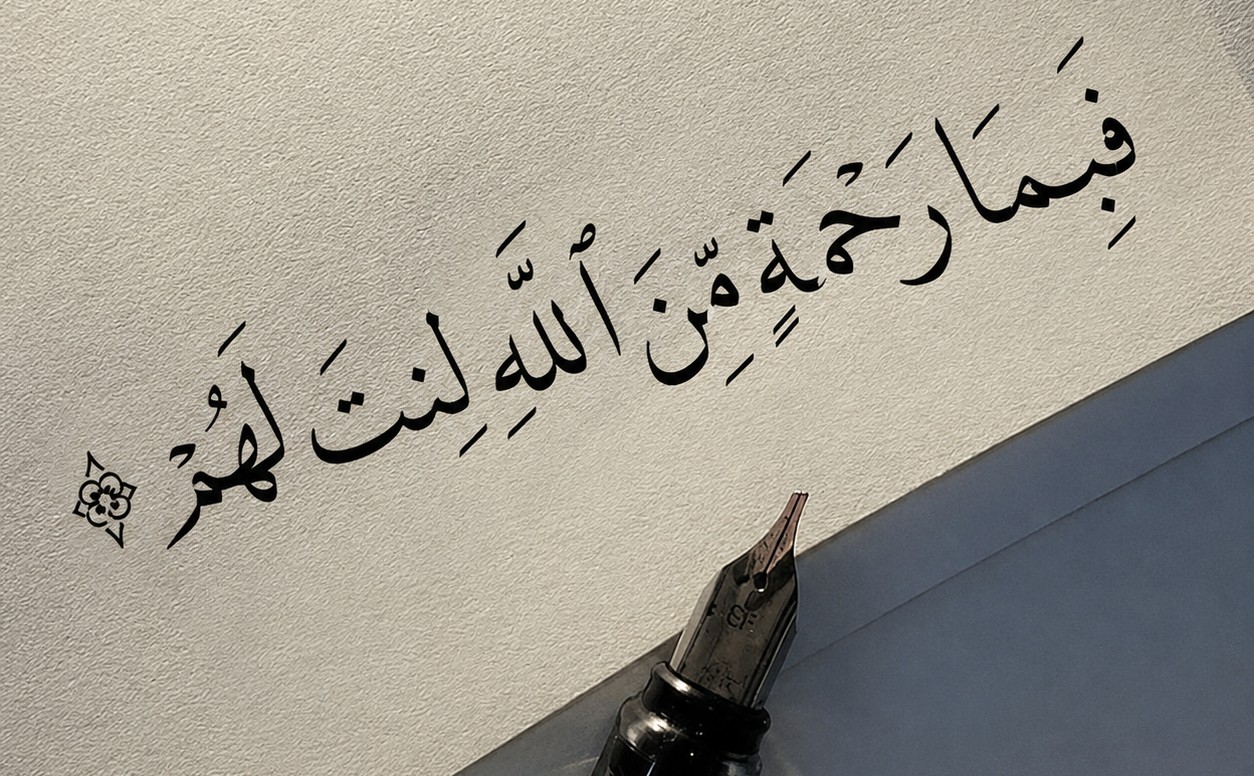 فَبِمَا رَحْمَةٍ مِّنَ ٱللَّهِ لِنتَ لَهُمْ